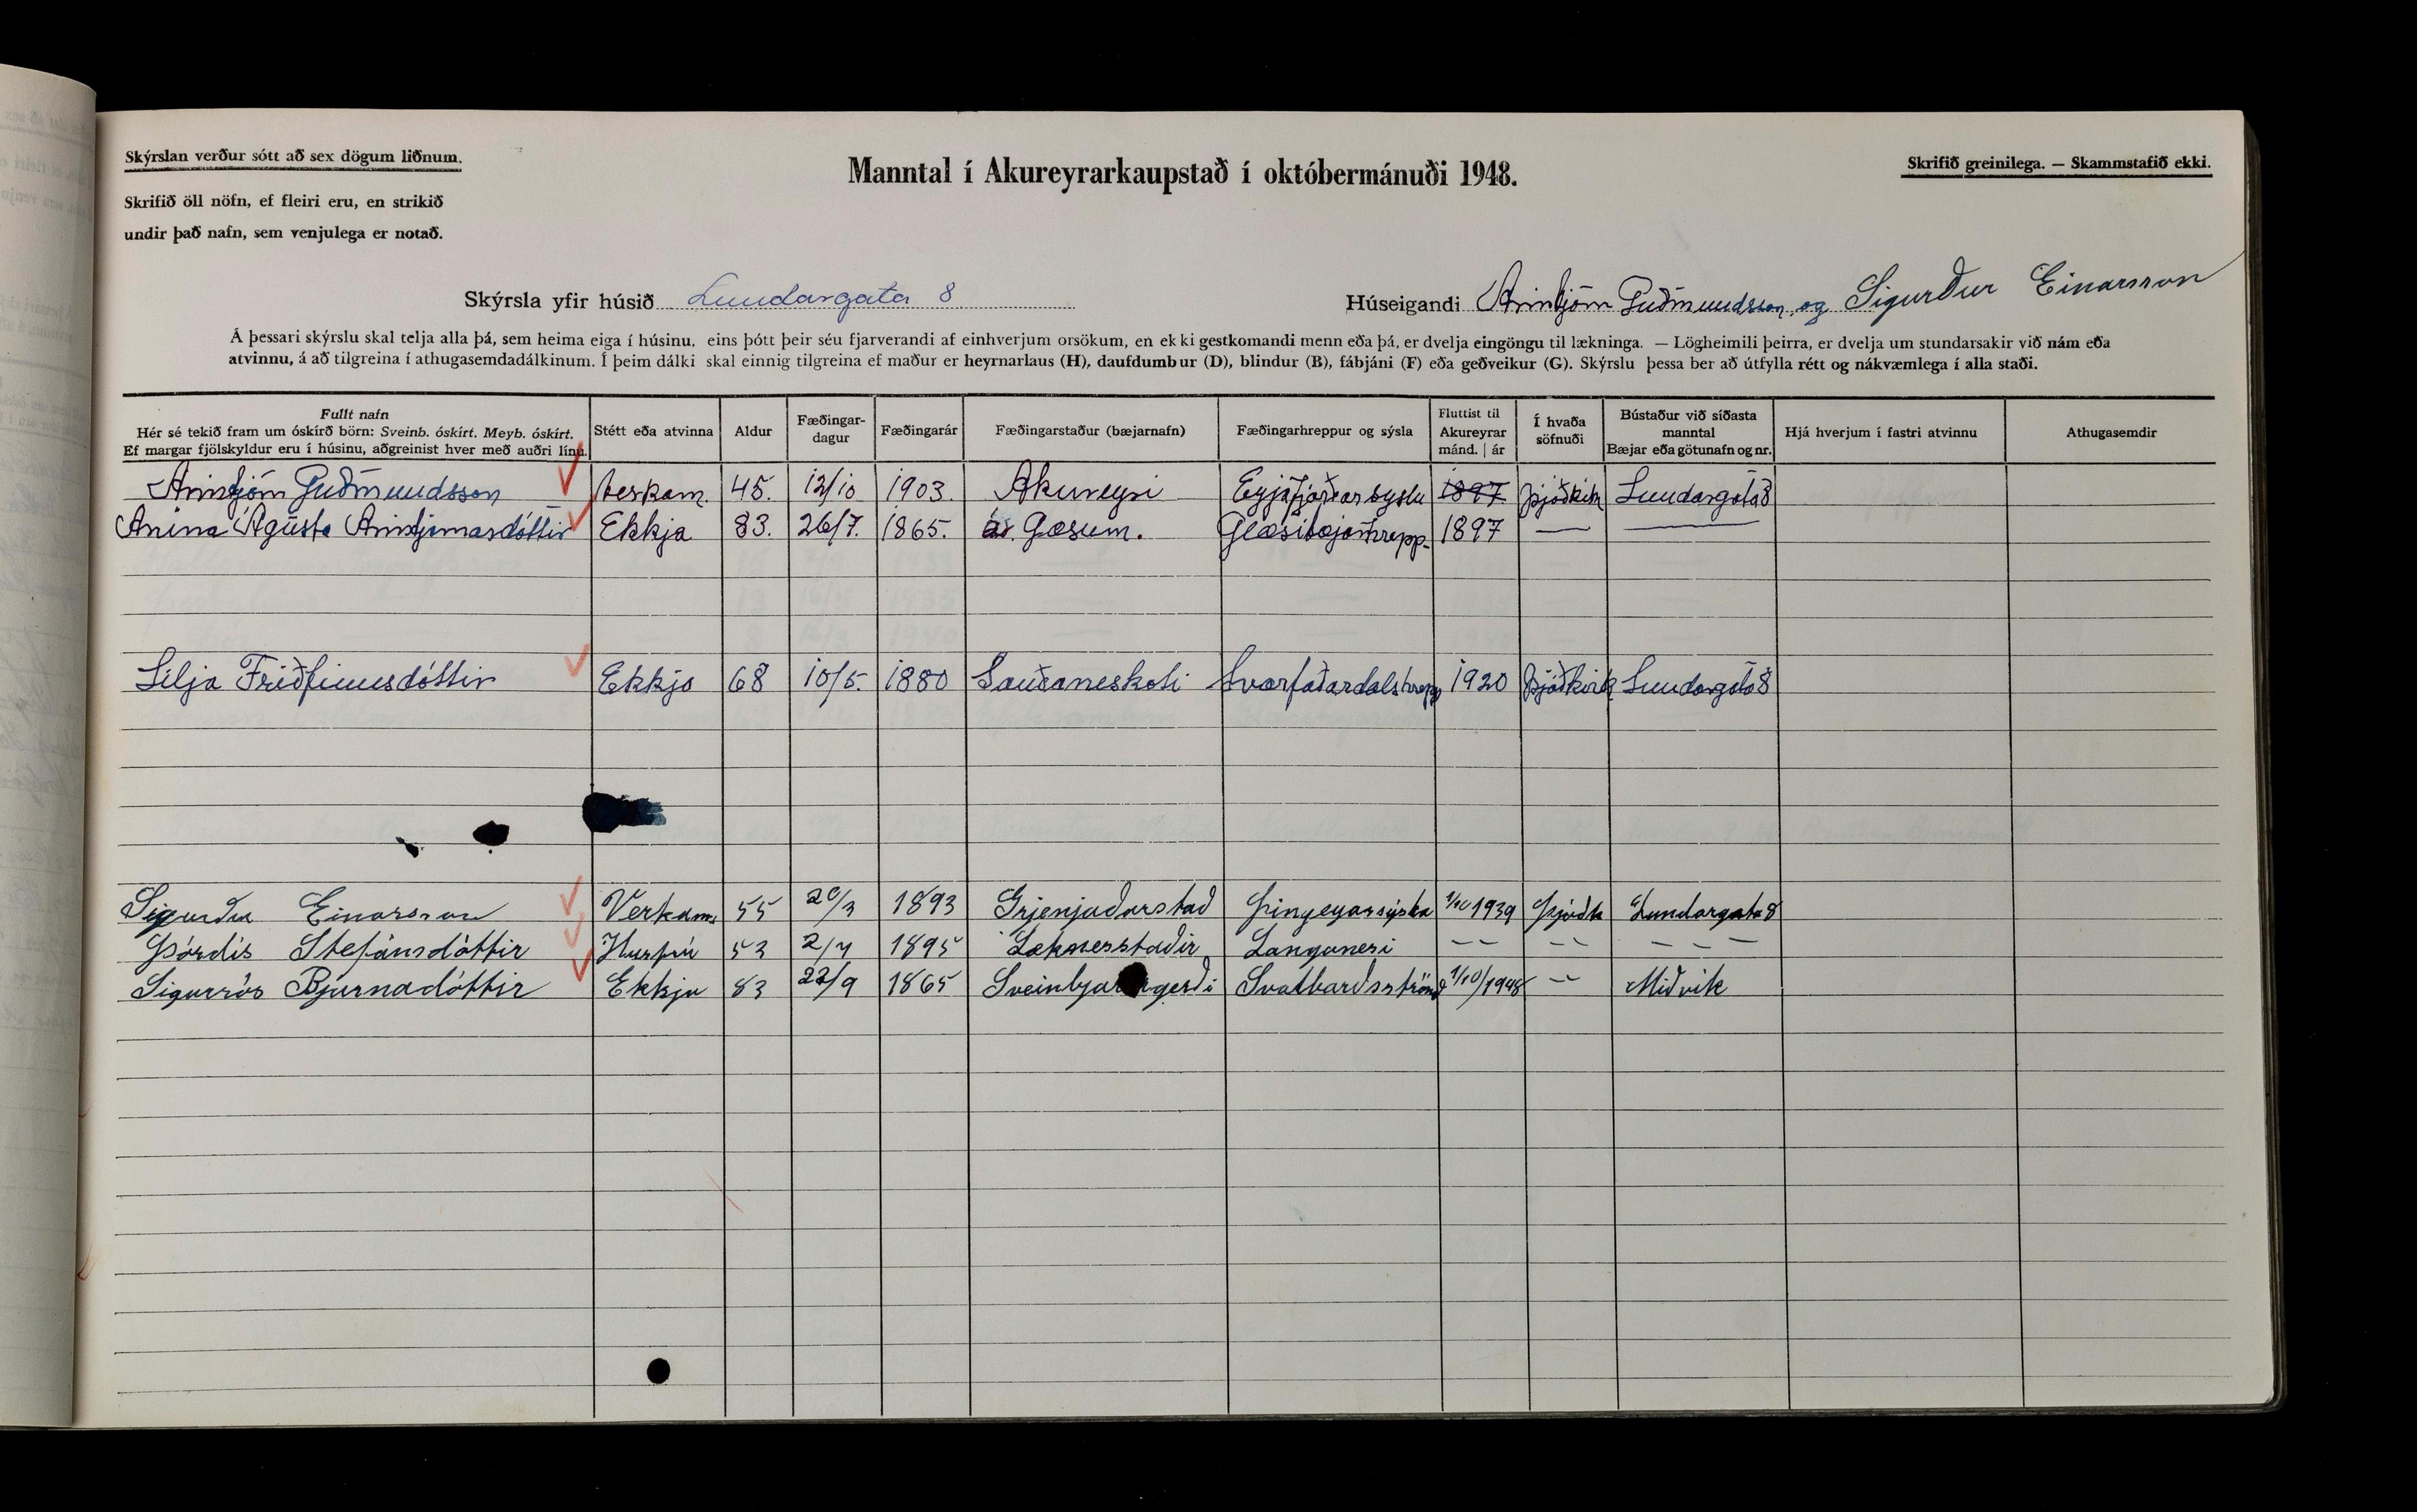 Skýrslan verður sótt að sex dögum liðnum.
Skrifið öll nöfn, ef fleiri eru, en strikið
undir það nafn, sem venjulega er notað.
Manntal í Akureyrarkaupstað í októbermánuði 1948.
Skrifið greinilega. — Skammstafið ekki.
Skýrsla yfir húsið Lundargata 8
Húseigandi Arinbjörn Guðmundsson og Sigurður Einarsson
Á þessari skýrslu skal telja alla þá, sem heima eiga í húsinu, eins þótt þeir séu fjarverandi af einhverjum orsökum, en ekki gestkomandi menn eða þá, er dvelja eingöngu til lækninga. — Lögheimili þeirra, er dvelja um stundarsakir við nám eða
atvinnu, á að tilgreina í athugasemdadálkinum. Í þeim dálki skal einnig tilgreina ef maður er heyrnarlaus (H), daufdumbur (D), blindur (B), fábjáni (F) eða geðveikur (G). Skýrslu þessa ber að útfylla rétt og nákvæmlega í alla staði.
Fullt nafn
Hér sé tekið fram um óskírð börn: Sveinb. óskírt. Meyb. óskírt.
Ef margar fjölskyldur eru í húsinu, aðgreinist hver með auðri línu.
Stétt eða atvinna
Aldur
Fæðingar-
dagur
Fæðingarár
Fæðingarstaður (bæjarnafn)
Fæðingarhreppur og sýsla
Fluttist til
Akureyrar
mánd. | ár
Í hvaða
söfnuði
Bústaður við síðasta
manntal
Bæjar eða götunafn og nr.
Hjá hverjum í fastri atvinnu
Athugasemdir
Arinbjörn Guðmundsson Verkam. 45. 12/10 1903. Akureyri Eyjafjarðarsýslu 1897 Þjóðkirk Lundargata 8
Anína Ágústa Arinbjarnardóttir Ekkja 83. 26/7. 1865. Gæsum. Glæsibæjarhrepp. 1897 — —
Lilja Friðfinnsdóttir Ekkja 68 10/5. 1880 Sauðaneskoti Svarfaðardalshrepp 1920 Þjóðkirk Lundargata 8
Sigurður Einarsson Verkam 55 20/3 1893 Grjenjaðarstað Þingeyarsýsla 1/10 1939 Þjóðk Lundargata 8
Þórdís Stefánsdóttir Húsfrú 53 2/4 1895 Langanesi — — — — — — —
Sigurrós Bjarnadóttir Ekkja 83 22/9 1865 Svalbarðsströnd 1/10/1948 — — Miðvík